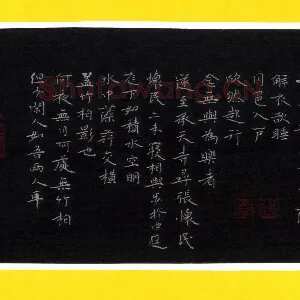 解衣欲睡
月色入户
欣然起行
念無與為樂者
遂至承天寺尋張懷民
懷民亦未寢相與步於中庭
庭下如積水空明
水中藻荇交橫
蓋竹柏影也
何夜無月何處無竹柏
但少閑人如吾兩人耳